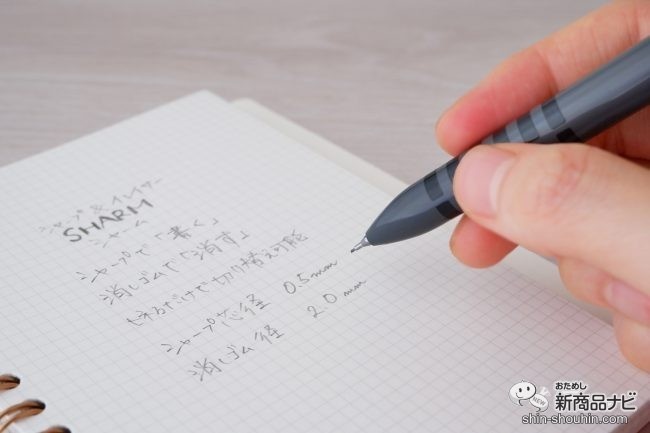 シャープ&イレイサー
SHARM
シャーム
シャープで「書く」
消しゴムで「消す」
ひねるだけで切り替え可能
シャープ芯径 0.5mm
消しゴム径 2.0mm
おためし
新商品ナビ
NEW
shin-shouhin.com